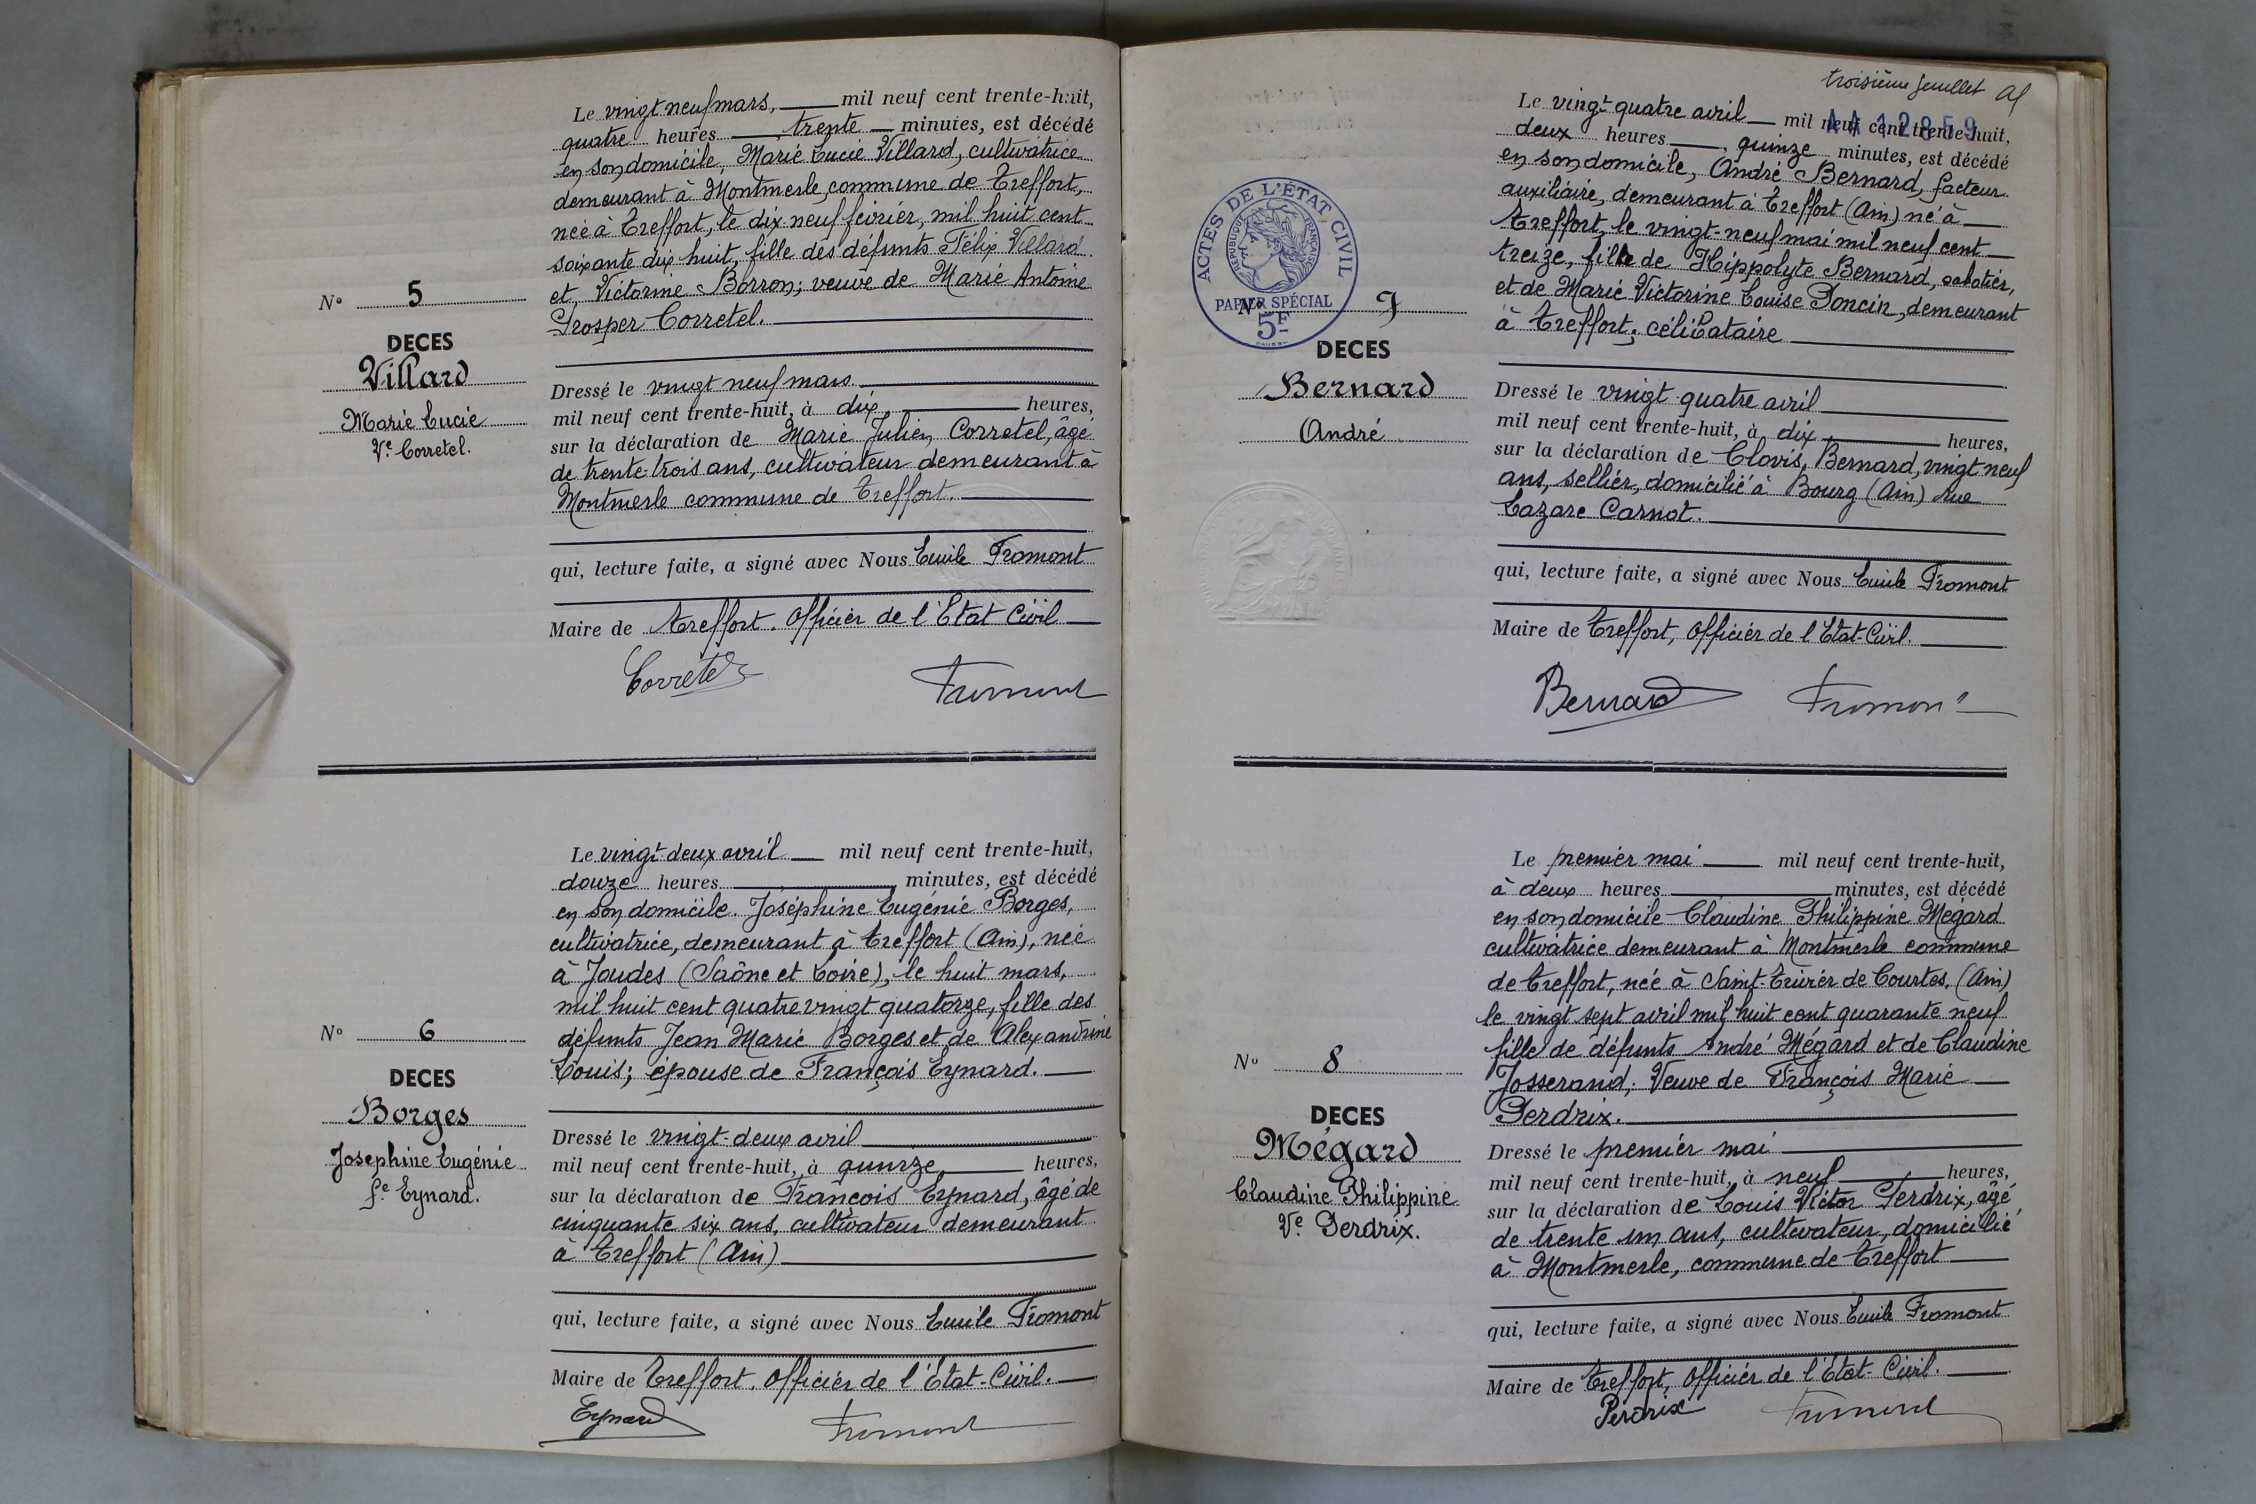 Le vingt neuf mars, mil neuf cent trente-huit,
quatre heures, trente minutes, est décédé
en son domicile, Marie Lucie Villard, cultivatrice
demeurant à Montmerle, commune de Treffort,
née à Treffort, le dix-neuf février, mil huit cent
soixante dix huit, fille des défunts Félix Villard
et, Victorine Borron; veuve de Marie Antoine
Prosper Corretel.
N° 5
DECES
Villard
Marie Lucie
Ve Corretel.
Dressé le vingt neuf mars
mil neuf cent trente-huit, à dix heures,
sur la déclaration de Marie Julien Corretel, âgé
de trente-trois ans, cultivateur demeurant à
Montmerle commune de Treffort.
qui, lecture faite, a signé avec Nous Emile Fromont
Maire de Treffort. Officier de l'Etat Civil
Corretel Fromont
Le vingt-deux avril mil neuf cent trente-huit,
douze heures minutes, est décédé
en son domicile. Joséphine Eugénie Borges,
cultivatrice, demeurant à Treffort (Ain), née
à Joudes (Saône et Loire), le huit mars,
mil huit cent quatre vingt quatorze, fille des
défunts Jean Marie Borges et de Alexandrine
Louis; épouse de François Eynard.
N° 6
DECES
Borges
Josephine Eugénie
fe Eynard.
Dressé le vingt-deux avril
mil neuf cent trente-huit, à quinze heures,
sur la déclaration de François Eynard, âgé de
cinquante six ans, cultivateur demeurant
à Treffort (Ain)
qui, lecture faite, a signé avec Nous Emile Fromont
Maire de Treffort. Officier de l'Etat-Civil.
Eynard Fromont
troisième feuillet
Le vingt quatre avril mil neuf cent trente-huit,
deux heures, quinze minutes, est décédé
en son domicile, André Bernard, facteur
auxiliaire, demeurant à Treffort (Ain) né à
Treffort, le vingt-neuf mai mil neuf cent
treize, fils de Hippolyte Bernard, sabotier,
et de Marie Victorine Louise Poncin, demeurant
à Treffort; célibataire
ACTES DE L'ÉTAT CIVIL
RÉPUBLIQUE FRANÇAISE
PAPIER SPÉCIAL
5F
N° 7
DECES
Bernard
André
Dressé le vingt quatre avril
mil neuf cent trente-huit, à dix heures,
sur la déclaration de Clovis, Bernard, vingt neuf
ans, sellier, domicilié à Bourg (Ain) rue
Lazare Carnot.
qui, lecture faite, a signé avec Nous Emile Fromont
Maire de Treffort, Officier de l'Etat-Civil.
Bernard Fromont
Le premier mai mil neuf cent trente-huit,
à deux heures minutes, est décédé
en son domicile Claudine Philippine Mégard
cultivatrice demeurant à Montmerle commune
de Treffort, née à Saint-Trivier de Courtes, (Ain)
le vingt sept avril mil huit cent quarante neuf
fille de défunts André Mégard et de Claudine
Josserand; Veuve de François Marie
Perdrix.
N° 8
DECES
Mégard
Claudine Philippine
Ve Perdrix.
Dressé le premier mai
mil neuf cent trente-huit, à neuf heures,
sur la déclaration de Louis Victor Perdrix, âgé
de trente un ans, cultivateur, domicilié
à Montmerle, commune de Treffort
qui, lecture faite, a signé avec Nous Emile Fromont
Maire de Treffort, Officier de l'Etat-Civil.
Perdrix Fromont